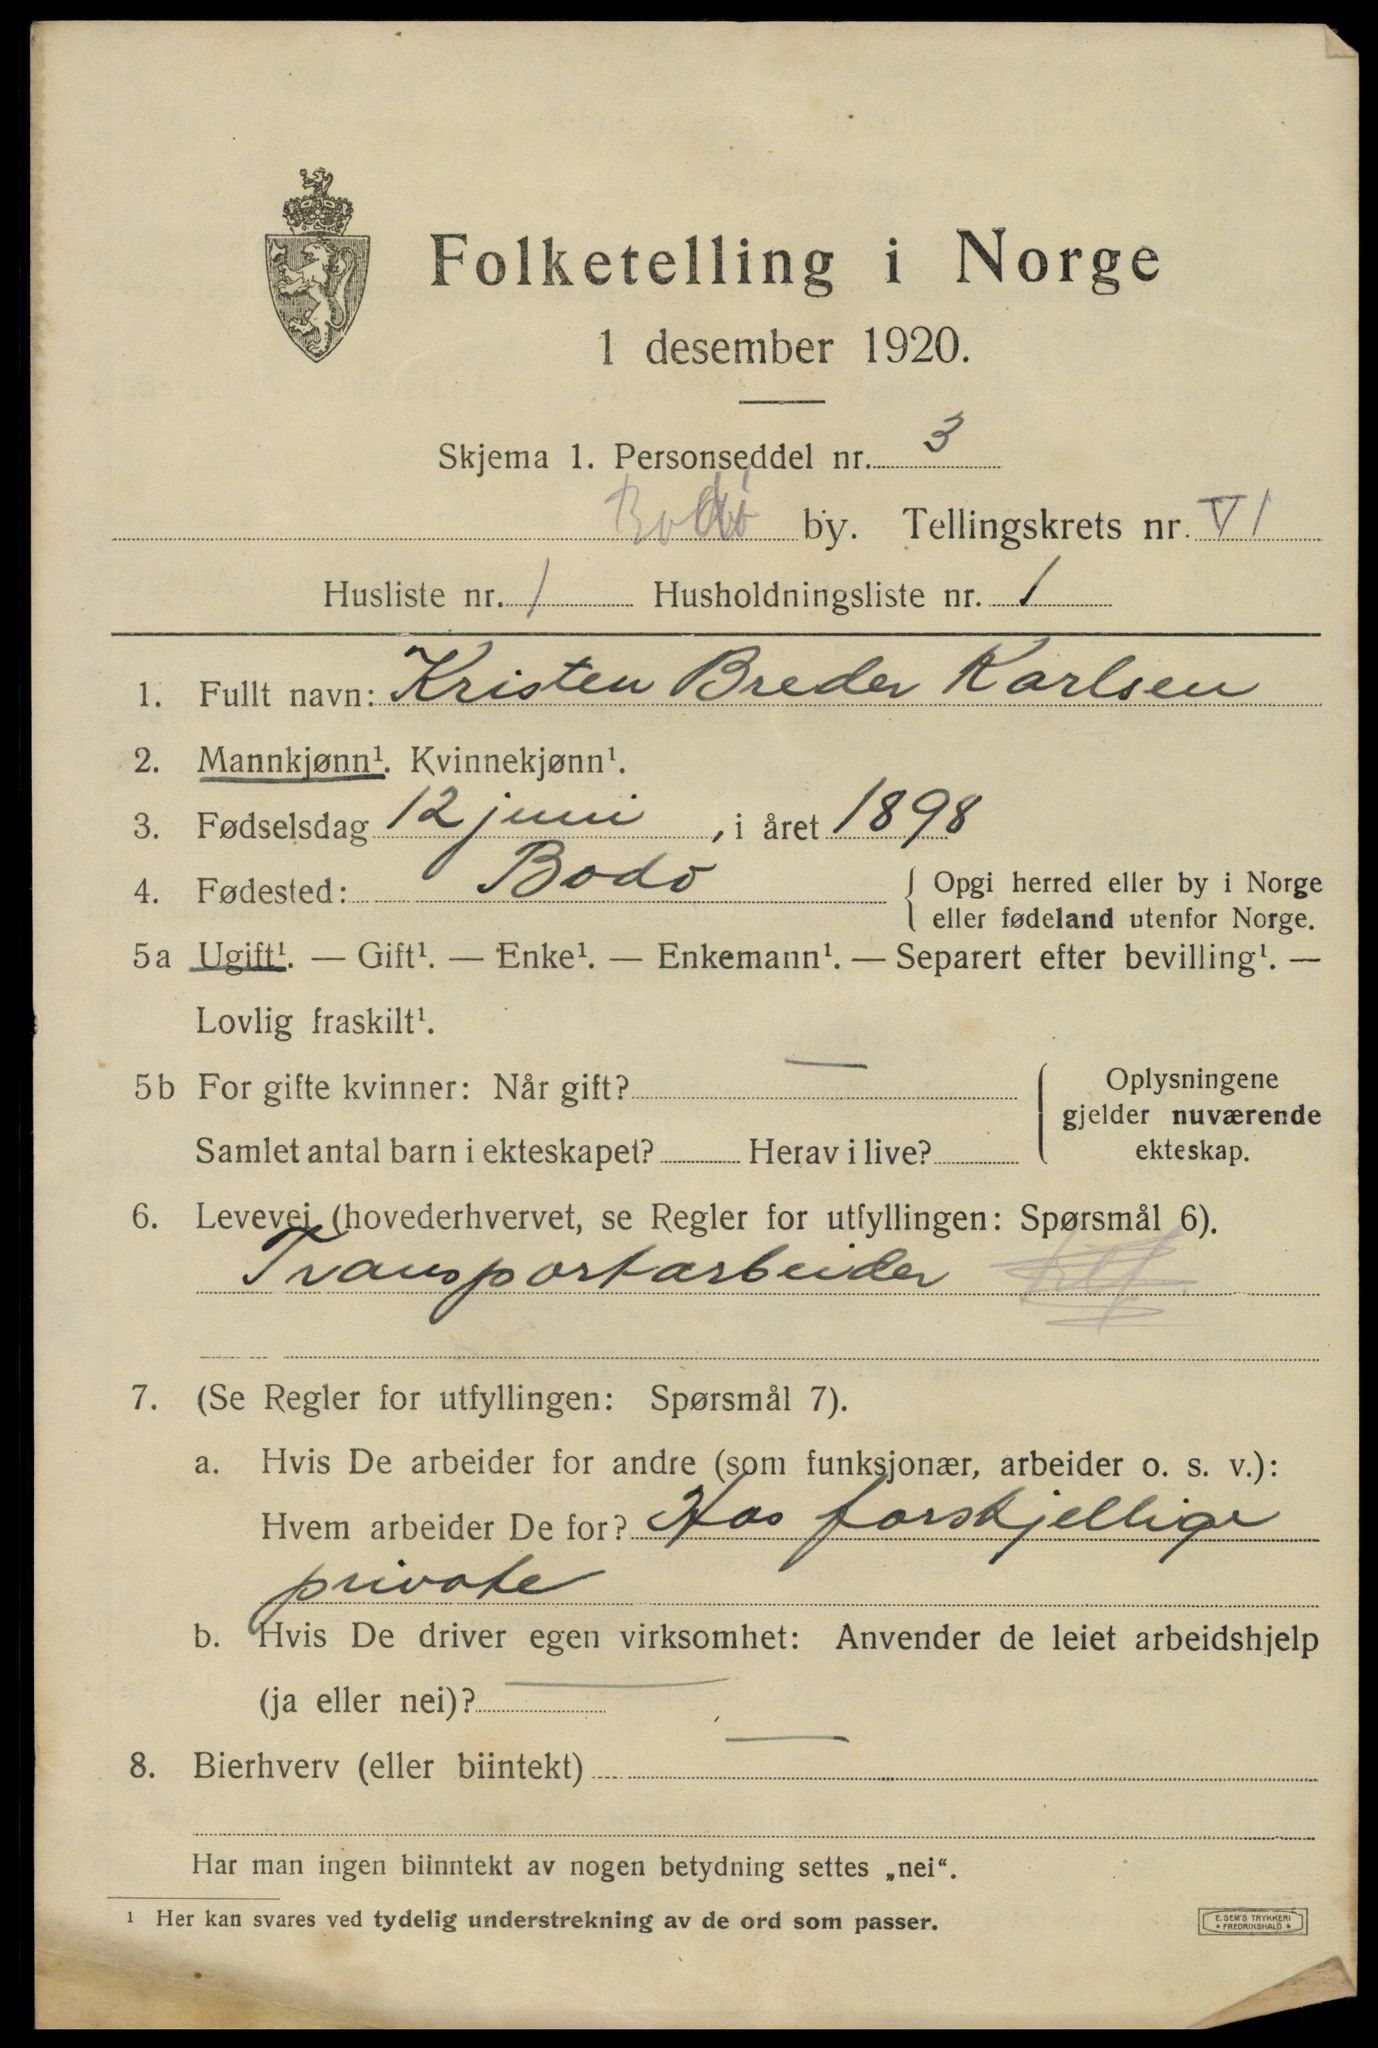 Folketelling i Norge
1 desember 1920.
Skjema 1. Personseddel nr. 3
Bodø by. Tellingskrets nr. VI
Husliste nr. 1 Husholdningsliste nr. 1
1. Fullt navn: Kristen Breder Karlsen
2. Mannkjønn¹. Kvinnekjønn¹.
3. Fødselsdag 12 juni, i året 1898
4. Fødested: Bodø { Opgi herred eller by i Norge
eller fødeland utenfor Norge.
5a Ugift¹. — Gift¹. — Enke¹. — Enkemann¹. — Separert efter bevilling¹. —
Lovlig fraskilt¹.
5b For gifte kvinner: Når gift? — { Oplysningene
gjelder nuværende
Samlet antal barn i ekteskapet? Herav i live? ekteskap.
6. Levevei (hovederhvervet, se Regler for utfyllingen: Spørsmål 6).
Transportarbeider
7. (Se Regler for utfyllingen: Spørsmål 7).
a. Hvis De arbeider for andre (som funksjonær, arbeider o. s. v.):
Hvem arbeider De for? Hos forskjellige
private
b. Hvis De driver egen virksomhet: Anvender de leiet arbeidshjelp
(ja eller nei)? —
8. Bierhverv (eller biintekt) —
Har man ingen biinntekt av nogen betydning settes „nei“.
¹ Her kan svares ved tydelig understrekning av de ord som passer.
E. SEM'S TRYKKERI
* FREDRIKSHALD *